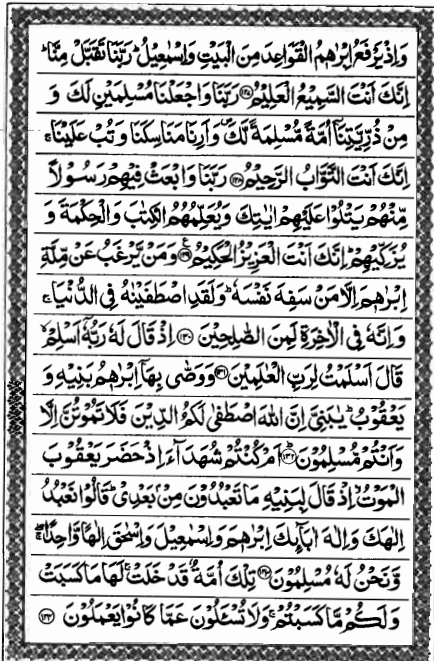 وَاِذْ يَرْفَعُ اِبْرٰهٖمُ الْقَوَاعِدَ مِنَ الْبَيْتِ وَاِسْمٰعِيْلُ ؕ رَبَّنَا تَقَبَّلْ مِنَّا ؕ
اِنَّكَ اَنْتَ السَّمِيْعُ الْعَلِيْمُ ﴿۱۲۷﴾ رَبَّنَا وَاجْعَلْنَا مُسْلِمَيْنِ لَكَ وَ
مِنْ ذُرِّيَّتِنَاۤ اُمَّةً مُّسْلِمَةً لَّكَ ۪ وَاَرِنَا مَنَاسِكَنَا وَتُبْ عَلَيْنَا ۚ
اِنَّكَ اَنْتَ التَّوَّابُ الرَّحِيْمُ ﴿۱۲۸﴾ رَبَّنَا وَابْعَثْ فِيْهِمْ رَسُوْلًا
مِّنْهُمْ يَتْلُوْا عَلَيْهِمْ اٰيٰتِكَ وَيُعَلِّمُهُمُ الْكِتٰبَ وَالْحِكْمَةَ وَ
يُزَكِّيْهِمْ ؕ اِنَّكَ اَنْتَ الْعَزِيْزُ الْحَكِيْمُ ﴿۱۲۹﴾ ع وَمَنْ يَّرْغَبُ عَنْ مِّلَّةِ
اِبْرٰهٖمَ اِلَّا مَنْ سَفِهَ نَفْسَهٗ ؕ وَلَقَدِ اصْطَفَيْنٰهُ فِى الدُّنْيَا ۚ
وَاِنَّهٗ فِى الْاٰخِرَةِ لَمِنَ الصّٰلِحِيْنَ ﴿۱۳۰﴾ اِذْ قَالَ لَهٗ رَبُّهٗۤ اَسْلِمْ ۙ
قَالَ اَسْلَمْتُ لِرَبِّ الْعٰلَمِيْنَ ﴿۱۳۱﴾ وَوَصّٰى بِهَاۤ اِبْرٰهٖمُ بَنِيْهِ وَ
يَعْقُوْبُ ؕ يٰبَنِىَّ اِنَّ اللّٰهَ اصْطَفٰى لَكُمُ الدِّيْنَ فَلَا تَمُوْتُنَّ اِلَّا
وَاَنْتُمْ مُّسْلِمُوْنَ ﴿۱۳۲﴾ ؕ اَمْ كُنْتُمْ شُهَدَآءَ اِذْ حَضَرَ يَعْقُوْبَ
الْمَوْتُ ۙ اِذْ قَالَ لِبَنِيْهِ مَا تَعْبُدُوْنَ مِنْۢ بَعْدِىْ ؕ قَالُوْا نَعْبُدُ
اِلٰهَكَ وَاِلٰهَ اٰبَآئِكَ اِبْرٰهٖمَ وَاِسْمٰعِيْلَ وَاِسْحٰقَ اِلٰهًا وَّاحِدًا ۖۚ
وَّنَحْنُ لَهٗ مُسْلِمُوْنَ ﴿۱۳۳﴾ تِلْكَ اُمَّةٌ قَدْ خَلَتْ ۚ لَهَا مَا كَسَبَتْ
وَلَكُمْ مَّا كَسَبْتُمْ ۚ وَلَا تُسْـَٔلُوْنَ عَمَّا كَانُوْا يَعْمَلُوْنَ ﴿۱۳۴﴾